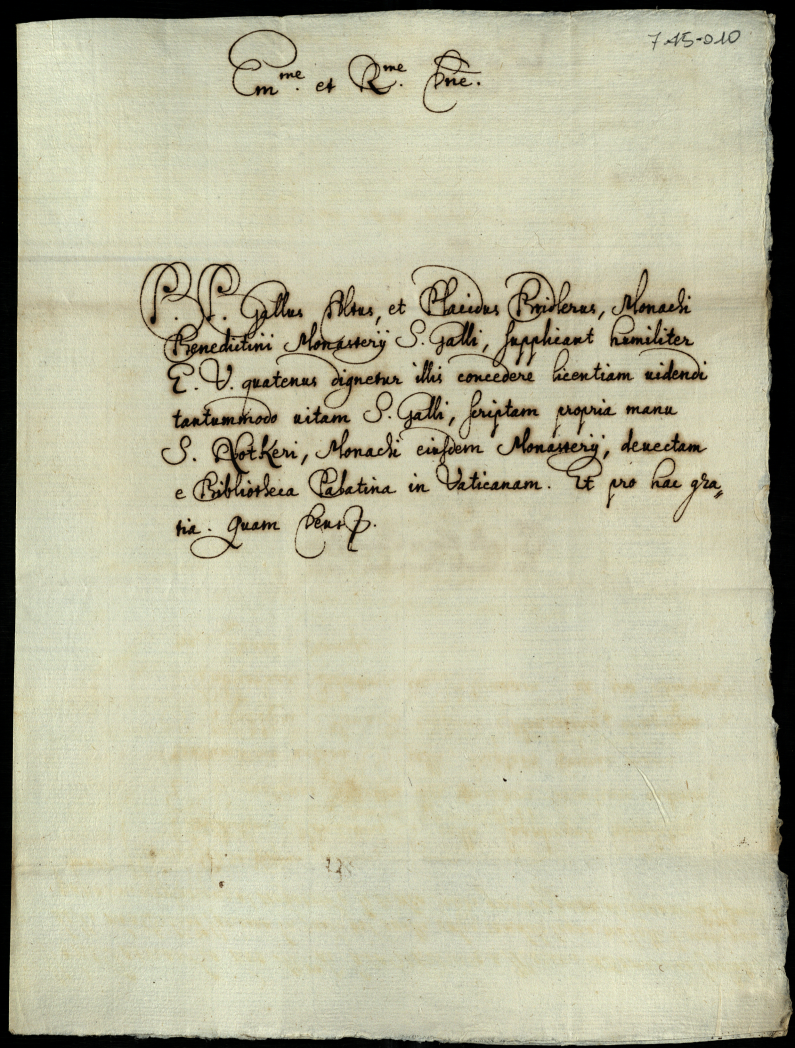 745-010
Em.me et R.me Pnē.
P. P. Gallus Altus, et Placidus Bridlerus, Monachi
Benedictini Monasterij S. Galli, supplicant humiliter
E. V. quatenus dignetur illis concedere licentiam uidendi
tantummodo uitam S. Galli, scriptam propria manu
S. Notkeri, Monachi eiusdem Monasterij, deuectam
e Bibliotheca Palatina in Vaticanam. Et pro hac gra„
tia. Quam Deus